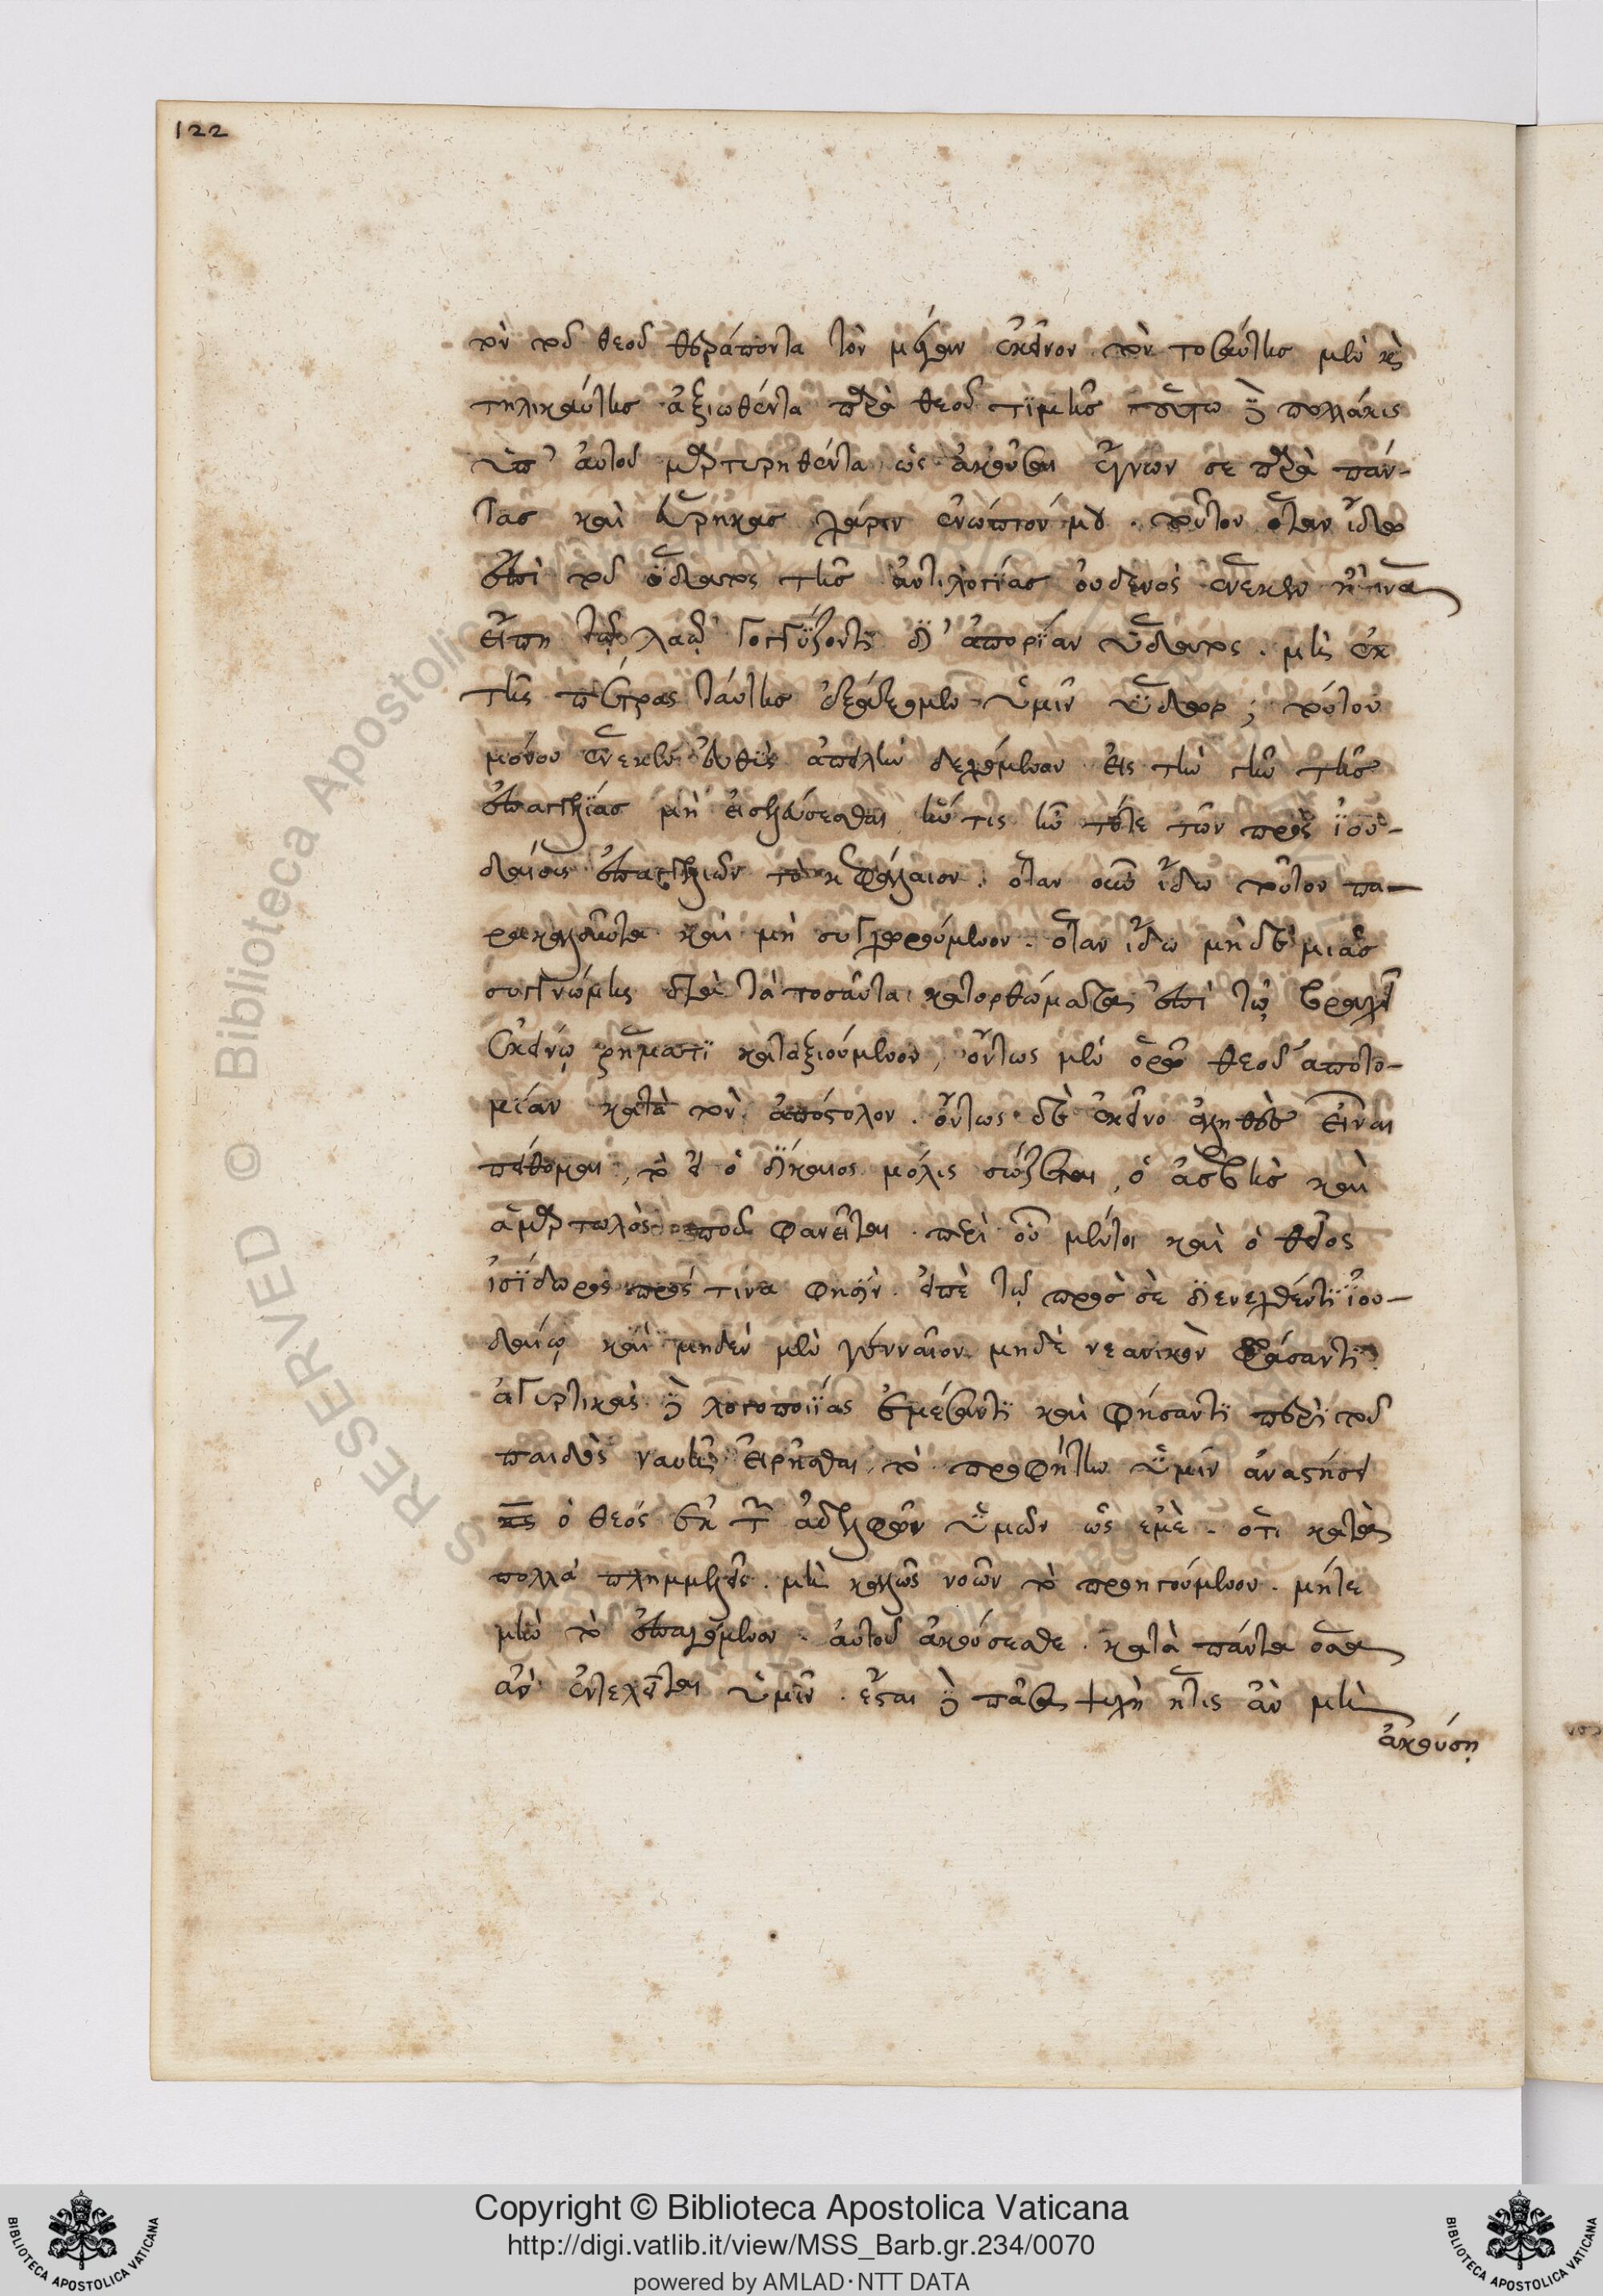 122
τὸν τοῦ θεοῦ θεράποντα τὸν μέγαν ἐκεῖνον τὸν τοσαύτης μὲν καὶ
τηλικαύτης ἀξιωθέντα παρὰ θεοῦ τιμῆς τοῦτο δὲ πολλάκις
ὑπ' αὐτοῦ μαρτυρηθέντα ὡς ἀκοῦσαι ἔγνων σε παρὰ πάν-
τας καὶ εὕρηκας χάριν ἐνώπιόν μου. τοῦτον ὅταν ἴδω
ἐπὶ τοῦ ὕδατος τῆς ἀντιλογίας οὐδενὸς ἕνεκεν ἢ ἵνα
εἴπῃ τῷ λαῷ γογγύζοντι δι' ἀπορίαν ὕδατος. μὴ ἐκ
τῆς πέτρας ταύτης ἐξάξομεν ὑμῖν ὕδωρ; τούτου
μόνου ἕνεκεν εὐθὺς ἀπειλὴν δεχόμενον εἰς τὴν γῆν τῆς
ἐπαγγελίας μὴ εἰσελεύσεσθαι ἥτις ἦν τότε τῶν πρὸς ἰου-
δαίους ἐπαγγελιῶν τὸ κεφάλαιον. ὅταν οὖν ἴδω τοῦτον πα-
ρακαλοῦντα καὶ μὴ συγχωρούμενον. ὅταν ἴδω μηδὲ μιᾶς
συγγνώμης διὰ τὰ τοσαῦτα κατορθώματα ἐπὶ τῷ βραχεῖ
ἐκείνῳ ῥήματι καταξιούμενον, ὄντως μὲν ὁρῶ θεοῦ ἀποτο-
μίαν κατὰ τὸν ἀπόστολον. ὄντως δὲ ἐκεῖνο ἀληθὲς εἶναι
πείθομαι, τὸ εἰ ὁ δίκαιος μόλις σώζεται, ὁ ἀσεβὴς καὶ
ἁμαρτωλὸς ποῦ φανεῖται. περὶ οὗ μέντοι καὶ ὁ θεῖος
ἰσίδωρος πρός τινα φησίν. εἰπὲ τῷ πρὸς σὲ διενεχθέντι ἰου-
δαίῳ καὶ μηδὲν μὲν γενναῖον μηδὲ νεανικὸν δράσαντι.
ἀγυρτικὰς δὲ λογοποιίας ἐμέσαντι καὶ φήσαντι περὶ τοῦ
παιδὸς ναυῆ εἰρῆσθαι, τὸ προφήτην ὑμῖν ἀναστήσει
κς ὁ θεὸς ἐκ τῶν ἀδελφῶν ὑμῶν ὡς ἐμέ. ὅτι κατὰ
πολλὰ πλημμελεῖς. μὴ καλῶς νοῶν τὸ προηγούμενον. μήτε
μὴν τὸ ἐπαγόμενον. αὐτοῦ ἀκούσεσθε. κατὰ πάντα ὅσα
ἂν ἐντελεῖται ὑμῖν. ἔσται δὲ πᾶσα ψυχὴ ἥτις ἂν μὴ
ἀκούσῃ
Copyright © Biblioteca Apostolica Vaticana
http://digi.vatlib.it/view/MSS_Barb.gr.234/0070
powered by AMLAD·NTT DATA